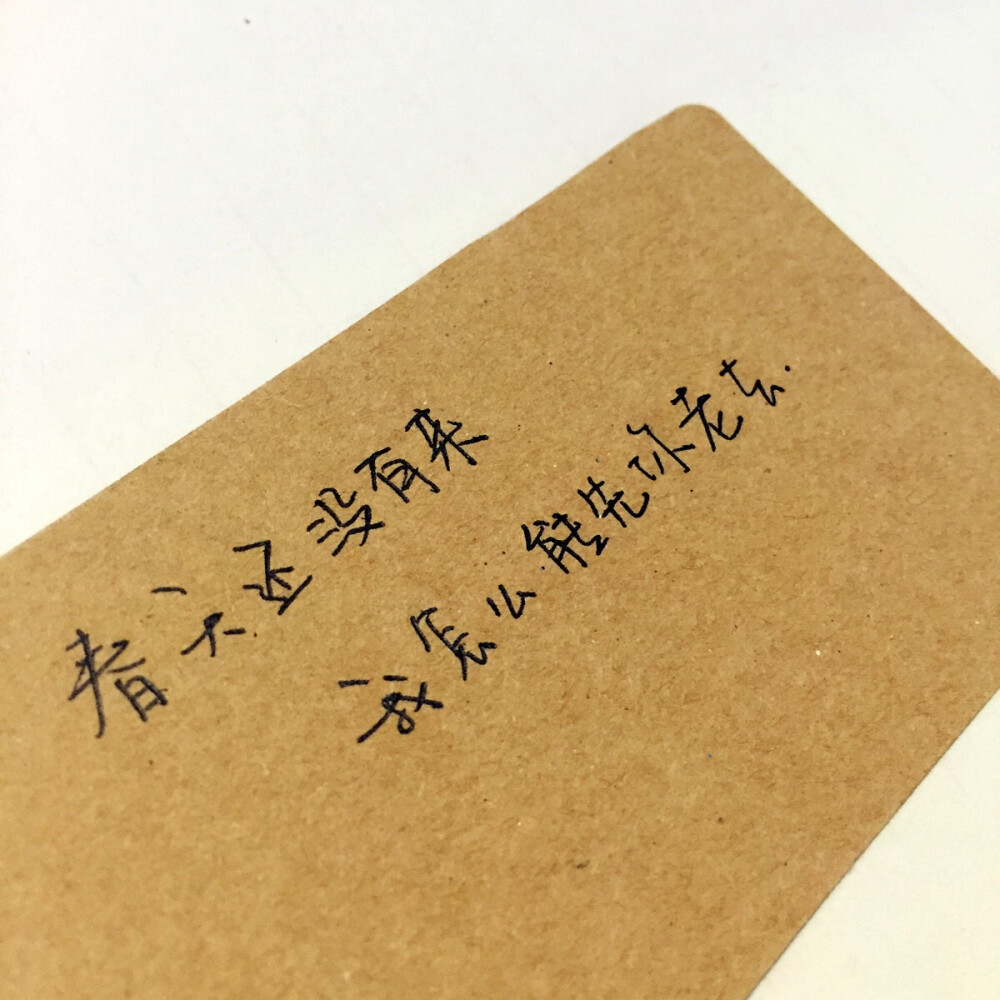 春天还没有来
我怎么能先你老去.